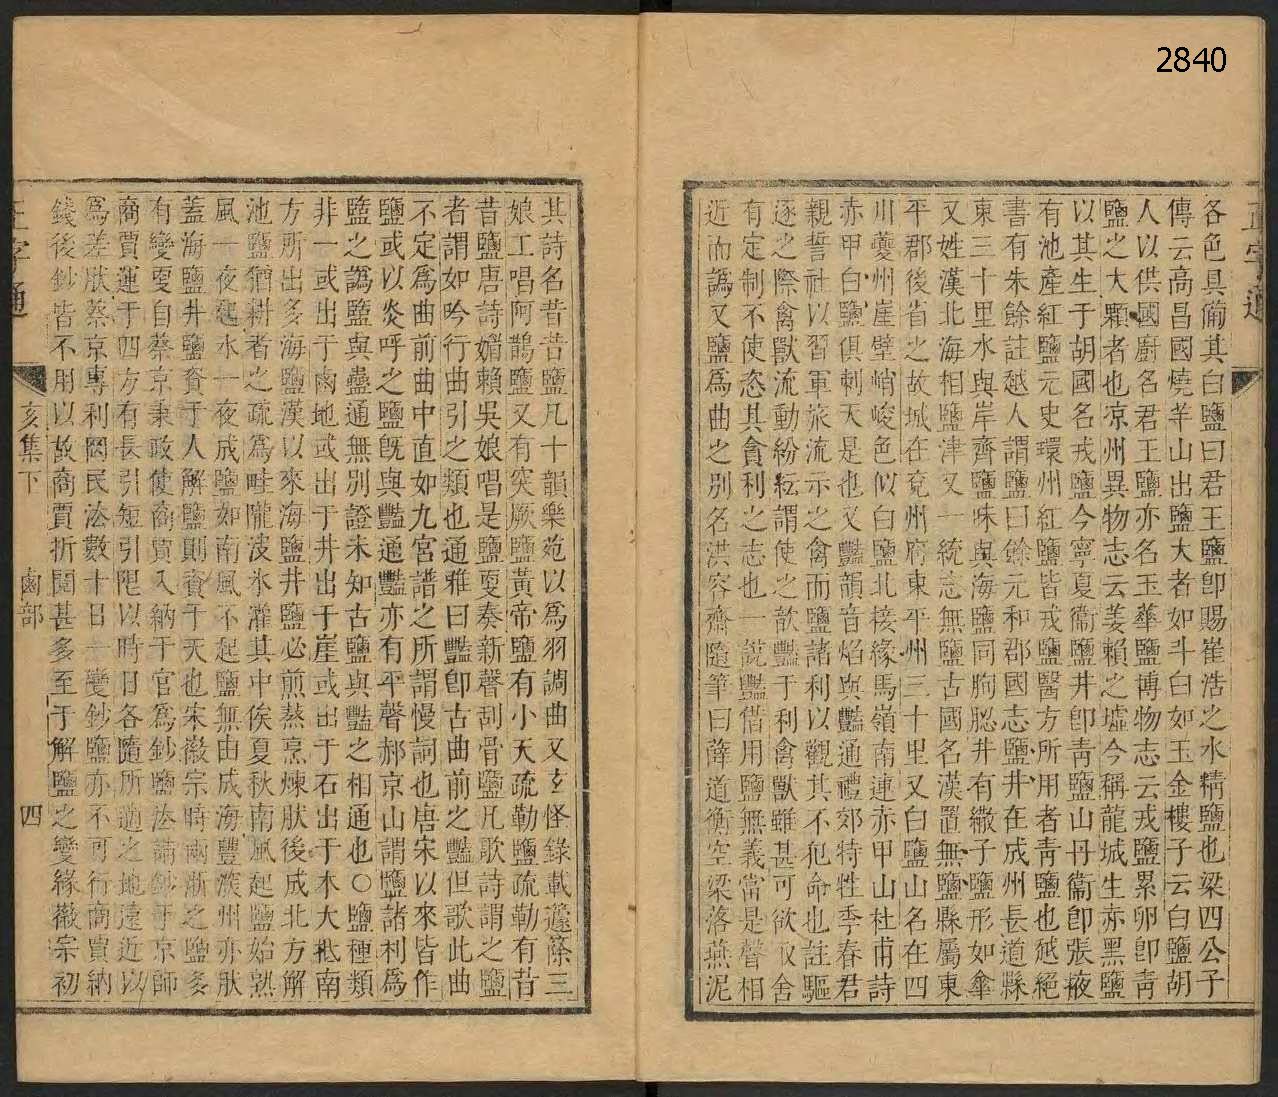 2840
各色具備其白鹽曰君王鹽卽賜崔浩之水精鹽也梁四公子
傳云高昌國燒羊山出鹽大者如斗白如玉金樓子云白鹽胡
人以供國廚名君王鹽亦名玉華鹽博物志云戎鹽累卵卽靑
鹽之大顆者也凉州異物志云姜賴之墟今稱龍城生赤黑鹽
以其生于胡國名戎鹽今寧夏衞鹽井卽靑鹽山丹衞卽張掖
有池產紅鹽元史環州紅鹽皆戎鹽醫方所用者靑鹽也越絕
書有朱餘註越人謂鹽曰餘元和郡國志鹽井在成州長道縣
東三十里水與岸齊鹽味與海鹽同朐䏰井有繖子鹽形如傘
又姓漢北海相鹽津又一統志無鹽古國名漢置無鹽縣屬東
平郡後省之故城在兗州府東平州三十里又白鹽山名在四
川夔州崖壁峭峻色似白鹽北接緣馬嶺南連赤甲山杜甫詩
赤甲白鹽俱刺天是也又豔韻音焰與豔通禮郊特牲季春君
親誓社以習軍旅流示之禽而鹽諸利以觀其不犯命也註驅
逐之際禽獸流動紛紜謂使之歆豔于利禽獸雖甚可欲取舍
有定制不使恣其貪利之志也一說豔借用鹽無義當是聲相
近而譌又鹽爲曲之別名洪容齋隨筆曰薛道衡空梁落燕泥
其詩名昔昔鹽凡十韻樂苑以爲羽調曲又玄怪錄載籧篨三
娘工唱阿鵲鹽又有突厥鹽黃帝鹽有小天疏勒鹽疏勒有昔
昔鹽唐詩媚賴吳娘唱是鹽更奏新聲刮骨鹽凡歌詩謂之鹽
者謂如吟行曲引之類也通雅曰豔卽古曲前之豔但歌此曲
不定爲曲前曲中直如九宮譜之所謂慢詞也唐宋以來皆作
鹽或以炎呼之鹽旣與豔通豔亦有平聲郝京山謂鹽諸利爲
盬之譌盬與蠱通無別證未知古鹽與豔之相通也○鹽種類
非一或出于鹵地或出于井出于崖或出于石出于木大抵南
方所出多海鹽漢以來海鹽井鹽必煎熬烹煉肰後成北方解
池鹽猶耕者之疏爲畦隴波水灌其中俟夏秋南風起鹽始熟
風一夜起水一夜成鹽如南風不起鹽無由成海豐濱州亦肰
蓋海鹽井鹽資于人解鹽則資于天也宋徽宗時兩浙之鹽多
有變更自蔡京秉政使商賈入納于官爲鈔鹽法請鈔于京師
商賈運于四方有長引短引限以時日各隨所適之地遠近以
爲差肰蔡京專利罔民法數十日一變鈔鹽亦不可行商賈納
錢後鈔皆不用以故商賈折閱甚多至于解鹽之變緣徽宗初
正字通
亥集下
鹵部
四